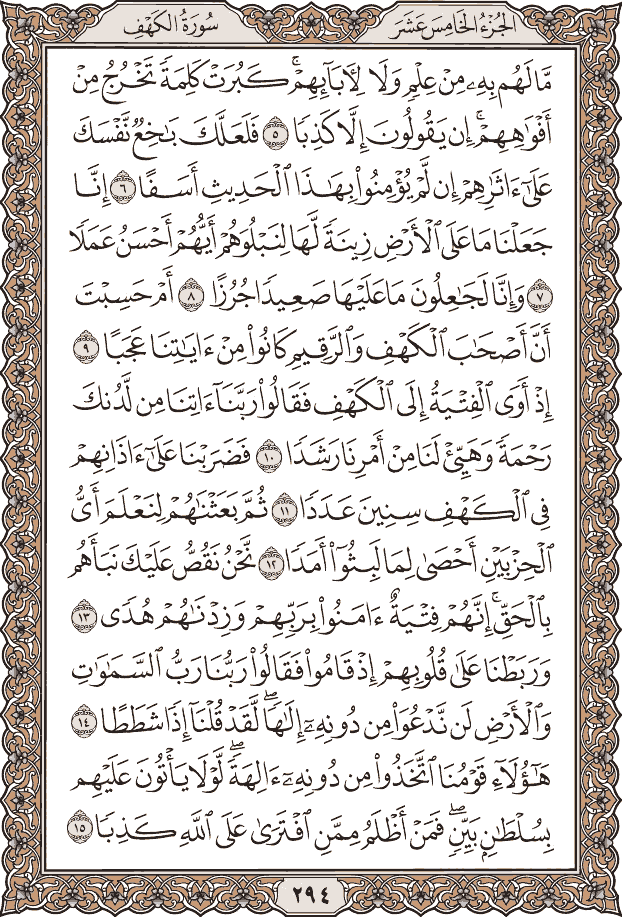 الجزء الخامس عشر
سورة الكهف
مَّا لَهُم بِهِۦ مِنْ عِلْمٍ وَلَا لِـَٔابَآئِهِمْ ۚ كَبُرَتْ كَلِمَةً تَخْرُجُ مِنْ
أَفْوَٰهِهِمْ ۚ إِن يَقُولُونَ إِلَّا كَذِبًا ٥ فَلَعَلَّكَ بَٰخِعٌ نَّفْسَكَ
عَلَىٰٓ ءَاثَٰرِهِمْ إِن لَّمْ يُؤْمِنُوا۟ بِهَٰذَا ٱلْحَدِيثِ أَسَفًا ٦ إِنَّا
جَعَلْنَا مَا عَلَى ٱلْأَرْضِ زِينَةً لَّهَا لِنَبْلُوَهُمْ أَيُّهُمْ أَحْسَنُ عَمَلًا
٧ وَإِنَّا لَجَٰعِلُونَ مَا عَلَيْهَا صَعِيدًا جُرُزًا ٨ أَمْ حَسِبْتَ
أَنَّ أَصْحَٰبَ ٱلْكَهْفِ وَٱلرَّقِيمِ كَانُوا۟ مِنْ ءَايَٰتِنَا عَجَبًا ٩
إِذْ أَوَى ٱلْفِتْيَةُ إِلَى ٱلْكَهْفِ فَقَالُوا۟ رَبَّنَآ ءَاتِنَا مِن لَّدُنكَ
رَحْمَةً وَهَيِّئْ لَنَا مِنْ أَمْرِنَا رَشَدًا ١٠ فَضَرَبْنَا عَلَىٰٓ ءَاذَانِهِمْ
فِى ٱلْكَهْفِ سِنِينَ عَدَدًا ١١ ثُمَّ بَعَثْنَٰهُمْ لِنَعْلَمَ أَىُّ
ٱلْحِزْبَيْنِ أَحْصَىٰ لِمَا لَبِثُوٓا۟ أَمَدًا ١٢ نَّحْنُ نَقُصُّ عَلَيْكَ نَبَأَهُم
بِٱلْحَقِّ ۚ إِنَّهُمْ فِتْيَةٌ ءَامَنُوا۟ بِرَبِّهِمْ وَزِدْنَٰهُمْ هُدًى ١٣
وَرَبَطْنَا عَلَىٰ قُلُوبِهِمْ إِذْ قَامُوا۟ فَقَالُوا۟ رَبُّنَا رَبُّ ٱلسَّمَٰوَٰتِ
وَٱلْأَرْضِ لَن نَّدْعُوَا۟ مِن دُونِهِۦٓ إِلَٰهًا ۖ لَّقَدْ قُلْنَآ إِذًا شَطَطًا ١٤
هَٰٓؤُلَآءِ قَوْمُنَا ٱتَّخَذُوا۟ مِن دُونِهِۦٓ ءَالِهَةً ۖ لَّوْلَا يَأْتُونَ عَلَيْهِم
بِسُلْطَٰنٍۭ بَيِّنٍ ۖ فَمَنْ أَظْلَمُ مِمَّنِ ٱفْتَرَىٰ عَلَى ٱللَّهِ كَذِبًا ١٥
٢٩٤